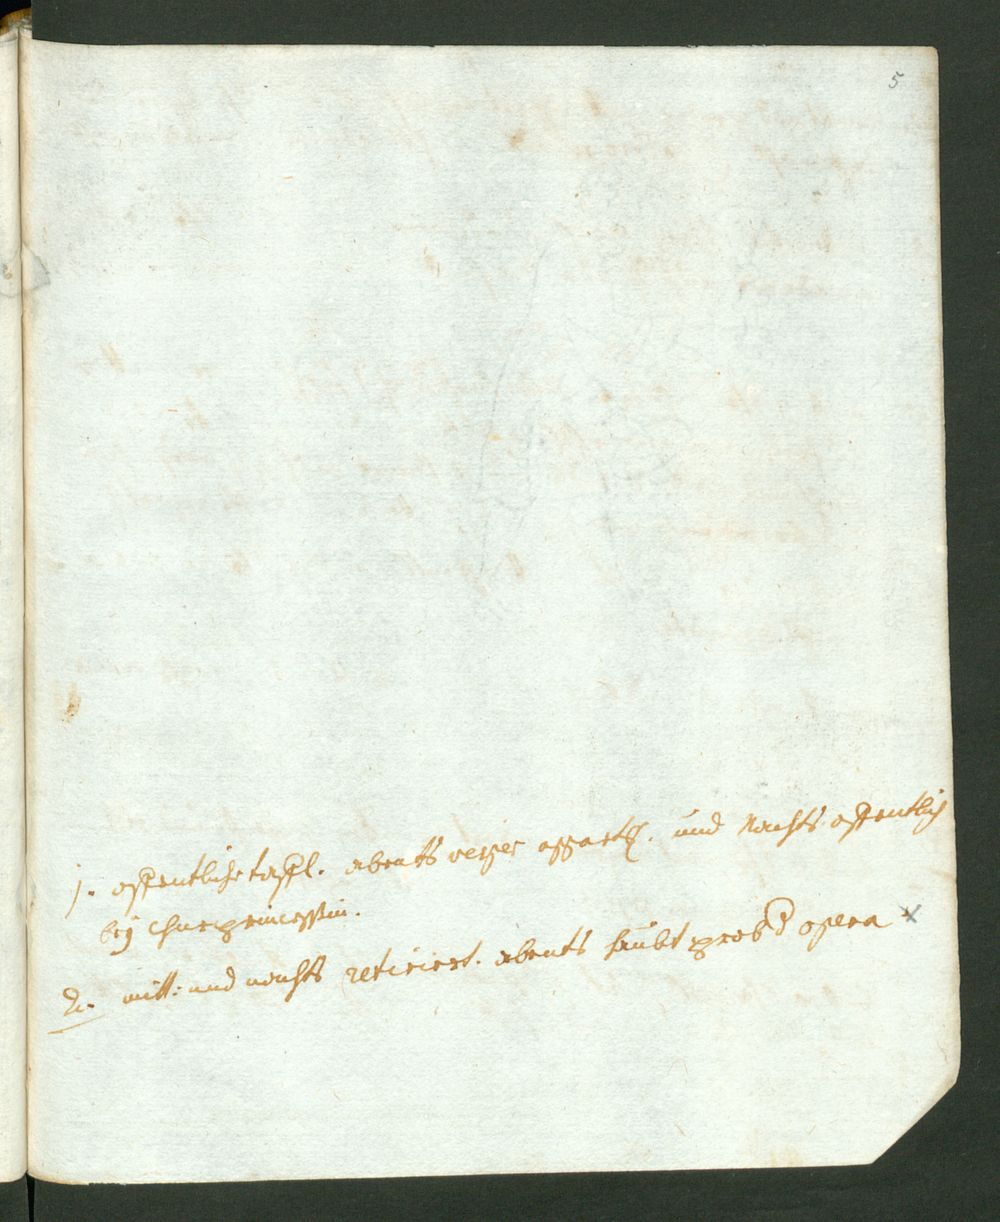 5
1. offentliche taffl. abents vesper appartem. und Nachts offentlich
bey Churprincessin.
2. mitt: und nachts retirirt. abents haubt prob d opera x